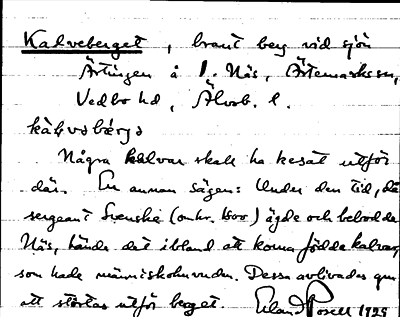 Kalveberget, brant berg vid sjön
Ärtingen å P. Näs, Ärtemarks sn,
Vedbo hd, Älvsb. l.
Några kalvar skall ha kesat utför
där. En annan sägen: Under den tid, då
sergeant Svenske (omkr. 1800) ägde och bebodde
Näs, hände det ibland att korna födde kalvar,
som hade människohuvuden. Dessa avlivades gm
att störtas utför berget. Erland Rosell 1925